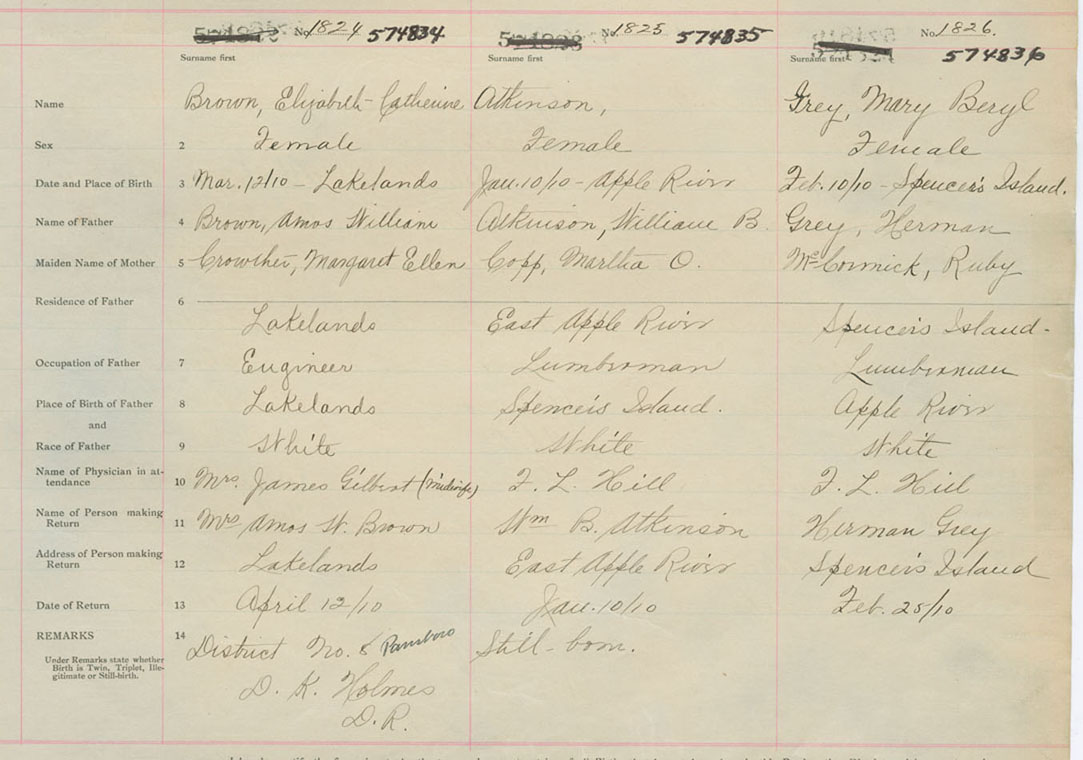 No. 1824 574834 No. 1825 574835 No. 1826. 574836
Surname first Surname first Surname first
Name Brown, Elizabeth Catherine Atkinson, Grey, Mary Beryl
Sex 2 Female Female Female
Date and Place of Birth 3 Mar. 12/10 - Lakelands Jan. 10/10 - Apple River Feb. 10/10 - Spencer's Island.
Name of Father 4 Brown, Amos William Atkinson, William B. Grey, Herman
Maiden Name of Mother 5 Crowther, Margaret Ellen Copp, Martha O. McCormick, Ruby
Residence of Father 6
Lakelands East Apple River Spencer's Island -
Occupation of Father 7 Engineer Lumberman Lumberman
Place of Birth of Father 8 Lakelands Spencer's Island. Apple River
and
Race of Father 9 White White White
Name of Physician in at-
tendance 10 Mrs. James Gilbert (Midwife) F. L. Hill F. L. Hill
Name of Person making
Return 11 Mrs Amos W. Brown Wm B. Atkinson Herman Grey
Address of Person making
Return 12 Lakelands East Apple River Spencer's Island
Date of Return 13 April 12/10 Jan. 10/10 Feb. 25/10
REMARKS 14 District No. 8 Parrsboro Still-born.
Under Remarks state whether
Birth is Twin, Triplet, Ille-
gitimate or Still-birth.
D. K. Holmes
D.R.